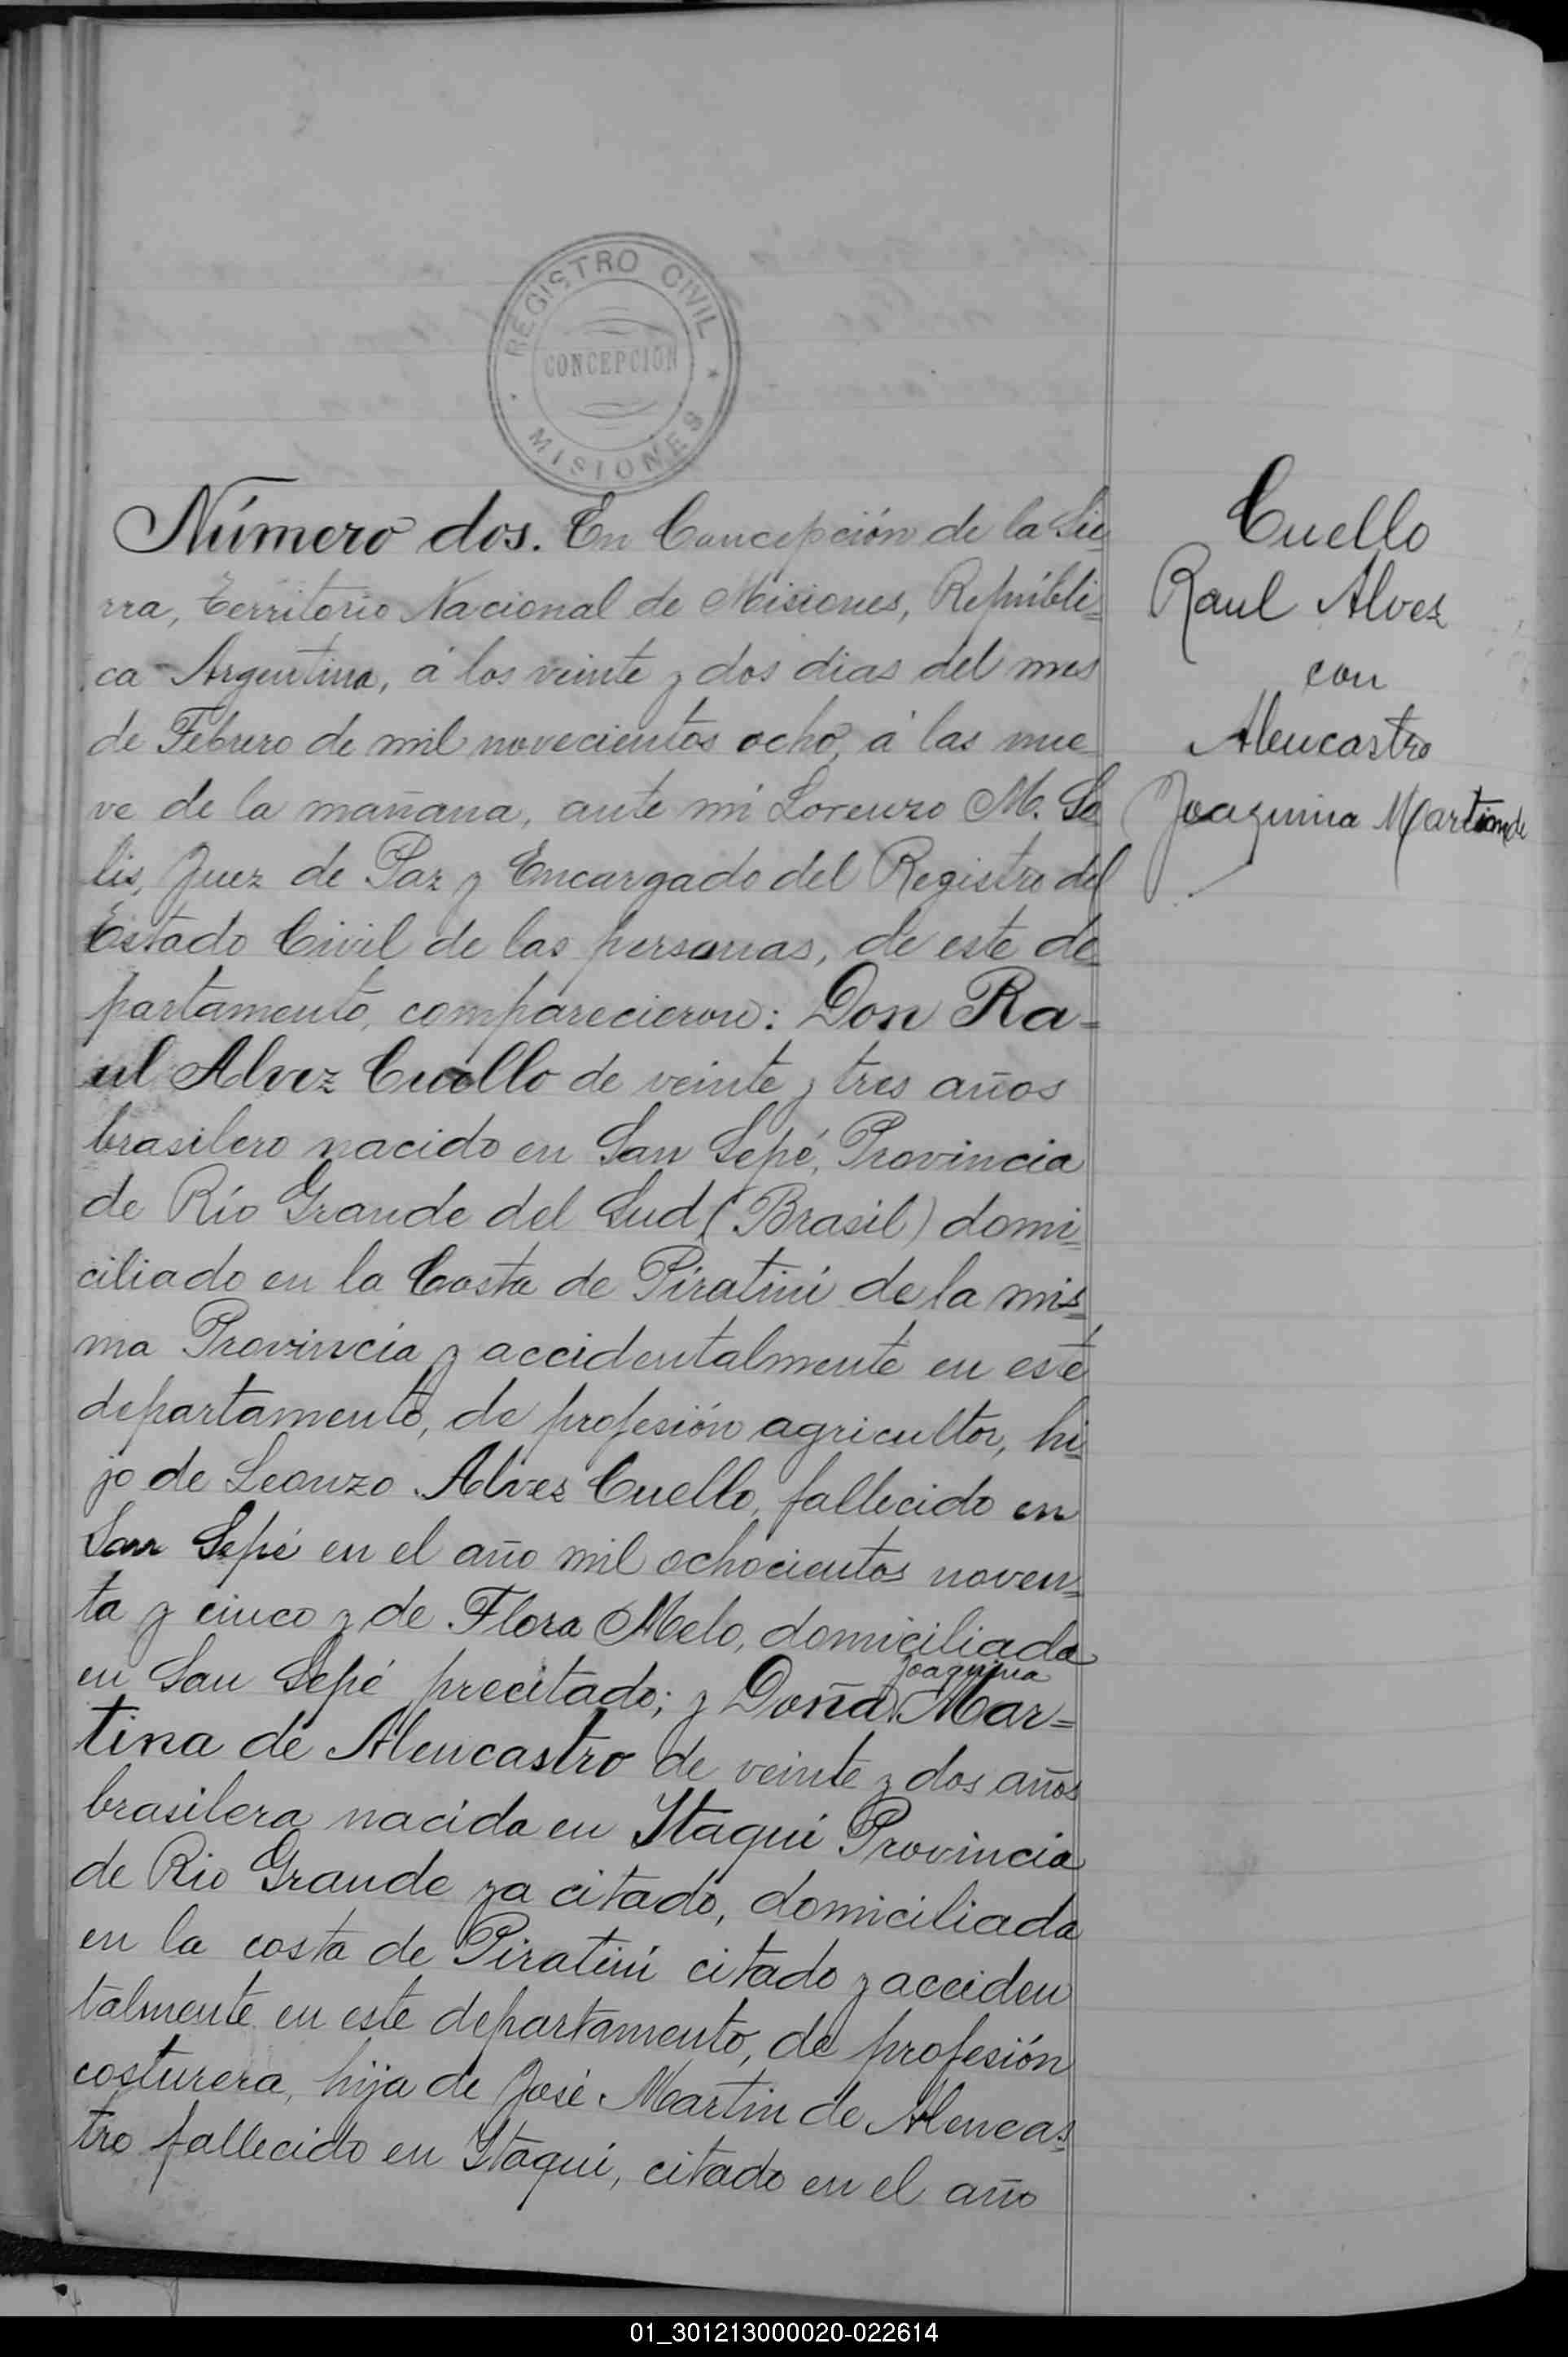 REGISTRO CIVIL
CONCEPCION
MISIONES
Número dos. En Concepción de la Sie
rra, Territorio Nacional de Misiones, Repúbli=
ca Argentina, á los veinte y dos dias del mes
de Febrero de mil novecientos ocho, á las nue
ve de la mañana, ante mi Lorenzo M. So
lis, Juez de Paz y Encargado del Registro del
Estado Civil de las personas, de este de
partamento, comparecieron: Don Ra=
ul Alvez Cuello de veinte y tres años
brasilero nacido en San Sepé, Provincia
de Río Grande del Sud (Brasil) domi=
ciliado en la Costa de Piratini de la mis=
ma Provincia y accidentalmente en este
departamento, de profesión agricultor, hi=
jo de Leonzo Alves Cuello, fallecido en
San Sepé en el año mil ochocientos noven=
ta y cinco y de Flora Melo, domiciliada
Joaquina
en San Sepé precitado; y Doña Mar=
tina de Alencastro de veinte y dos años
brasilera nacida en Itaqui Provincia
de Rio Grande ya citado, domiciliada
en la costa de Piratini citado y acciden
talmente en este departamento, de profesión
costurera, hija de José Martin de Alencas=
tro fallecido en Itaqui, citado en el año
Cuello
Raul Alvez
con
Alencastro
Joaquina Martina de
01_301213000020-022614